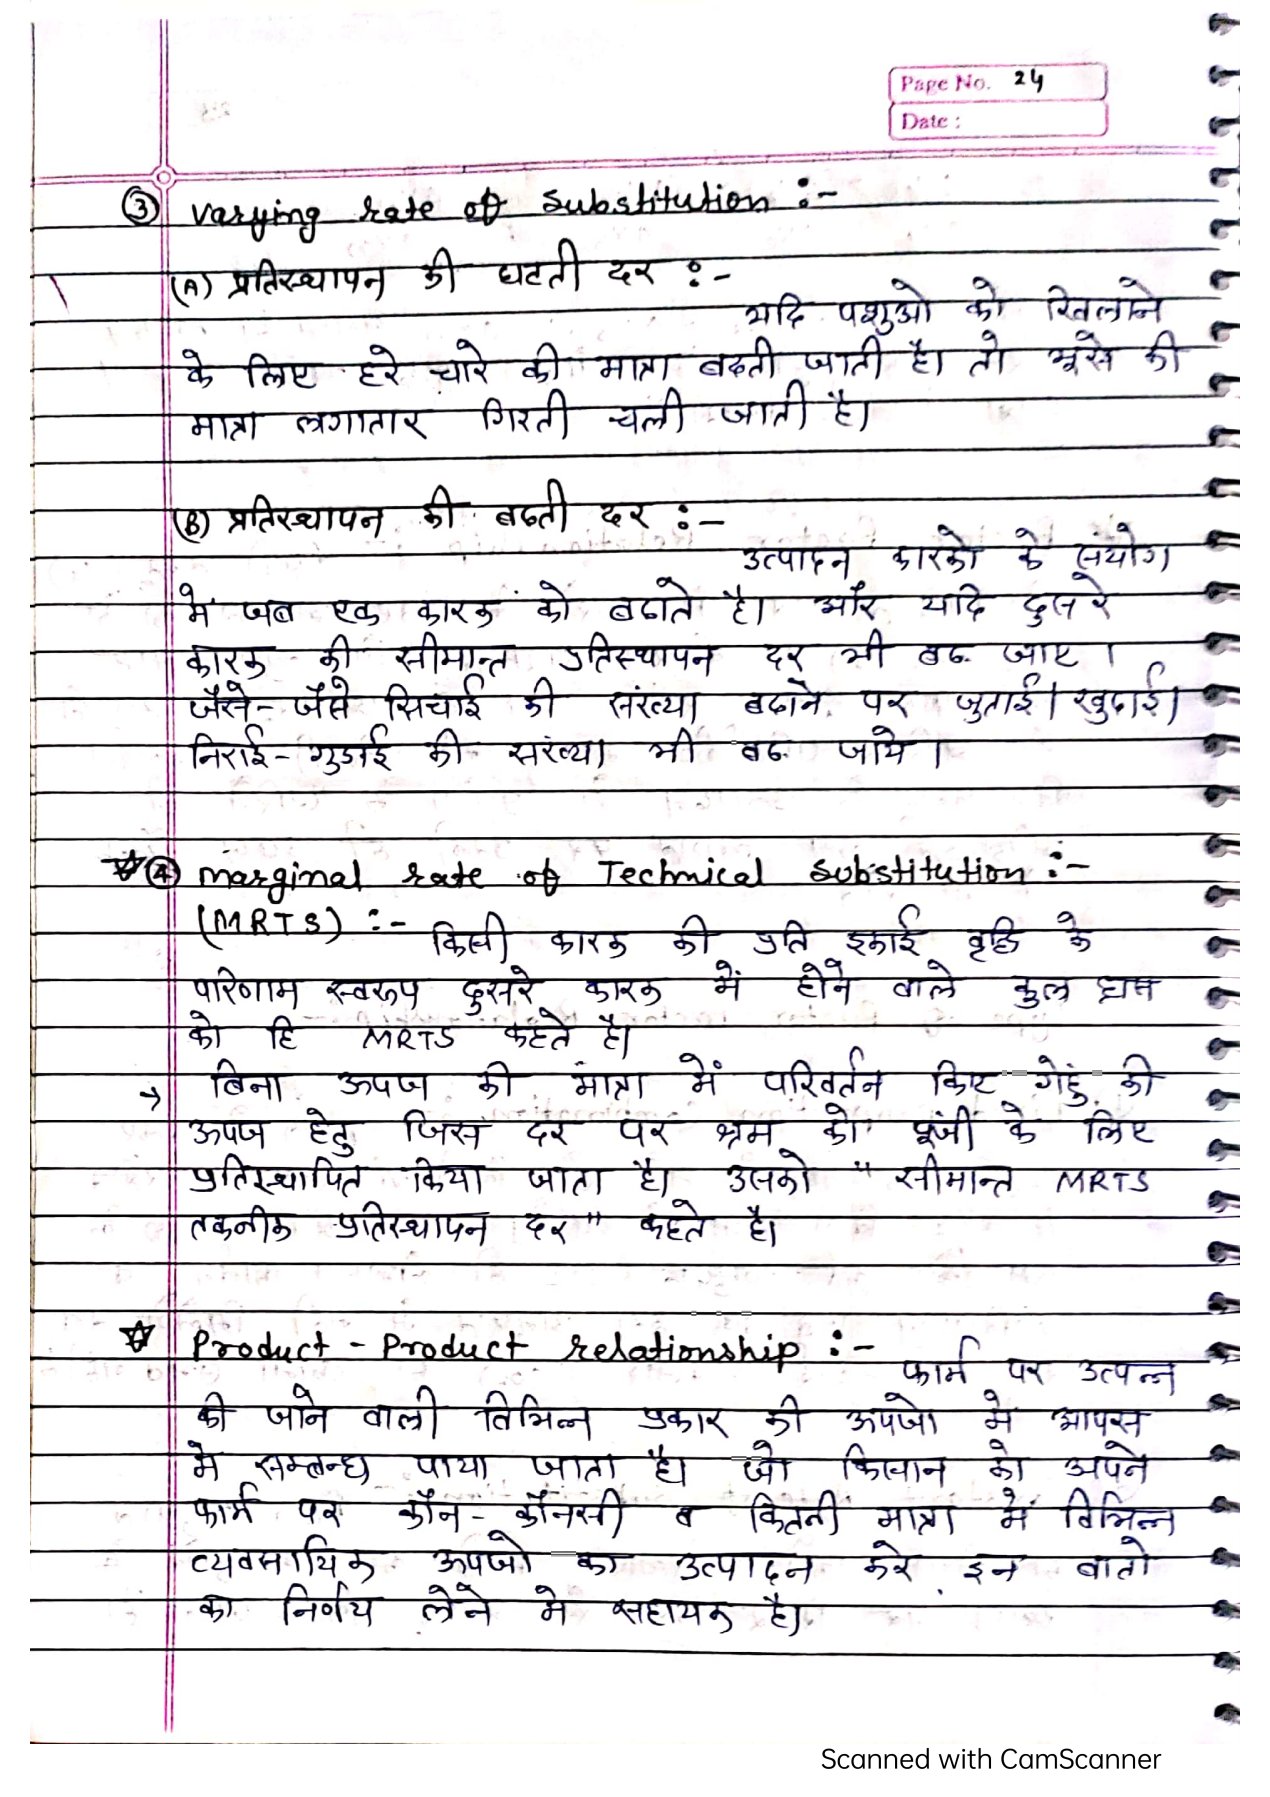 Page No. 24
Date :
③ Varying rate of substitution :-
(A) प्रतिस्थापन की घटती दर :-
यदि पशुओ को खिलाने
के लिए हरे चारे की मात्रा बढती जाती है। तो भूसे की
मात्रा लगातार गिरती चली जाती है।
(B) प्रतिस्थापन की बढती दर :-
उत्पादन कारको के संयोग
मे जब एक कारक को बढाते है। और यदि दुसरे
कारक की सीमान्त प्रतिस्थापन दर भी बढ जाए ।
जैसे- जैसे सिचाई की संख्या बढाने पर जुताई। खुदाई।
निराई- गुडाई की संख्या भी बढ जाये ।
☆ ④ Marginal rate of Technical substitution :-
(MRTS) :- किसी कारक की प्रति इकाई वृद्धि के
परिणाम स्वरूप दुसरे कारक में होने वाले कुल ह्रास
को हि MRTS कहते है।
→ बिना ऊपज की मात्रा में परिवर्तन किए गेहुं की
ऊपज हेतु जिस दर पर श्रम को पूंजी के लिए
प्रतिस्थापित किया जाता है। उसको "सीमान्त MRTS
तकनीक प्रतिस्थापन दर" कहते है।
☆ Product - Product relationship :- फार्म पर उत्पन्न
की जाने वाली विभिन्न प्रकार की ऊपजो मे आपस
मे सम्बन्ध पाया जाता है। जो किसान को अपने
फार्म पर कौन- कौनसी व कितनी मात्रा में विभिन्न
व्यवसायिक ऊपजो का उत्पादन करे इन बातो
का निर्णय लेने मे सहायक है।
Scanned with CamScanner